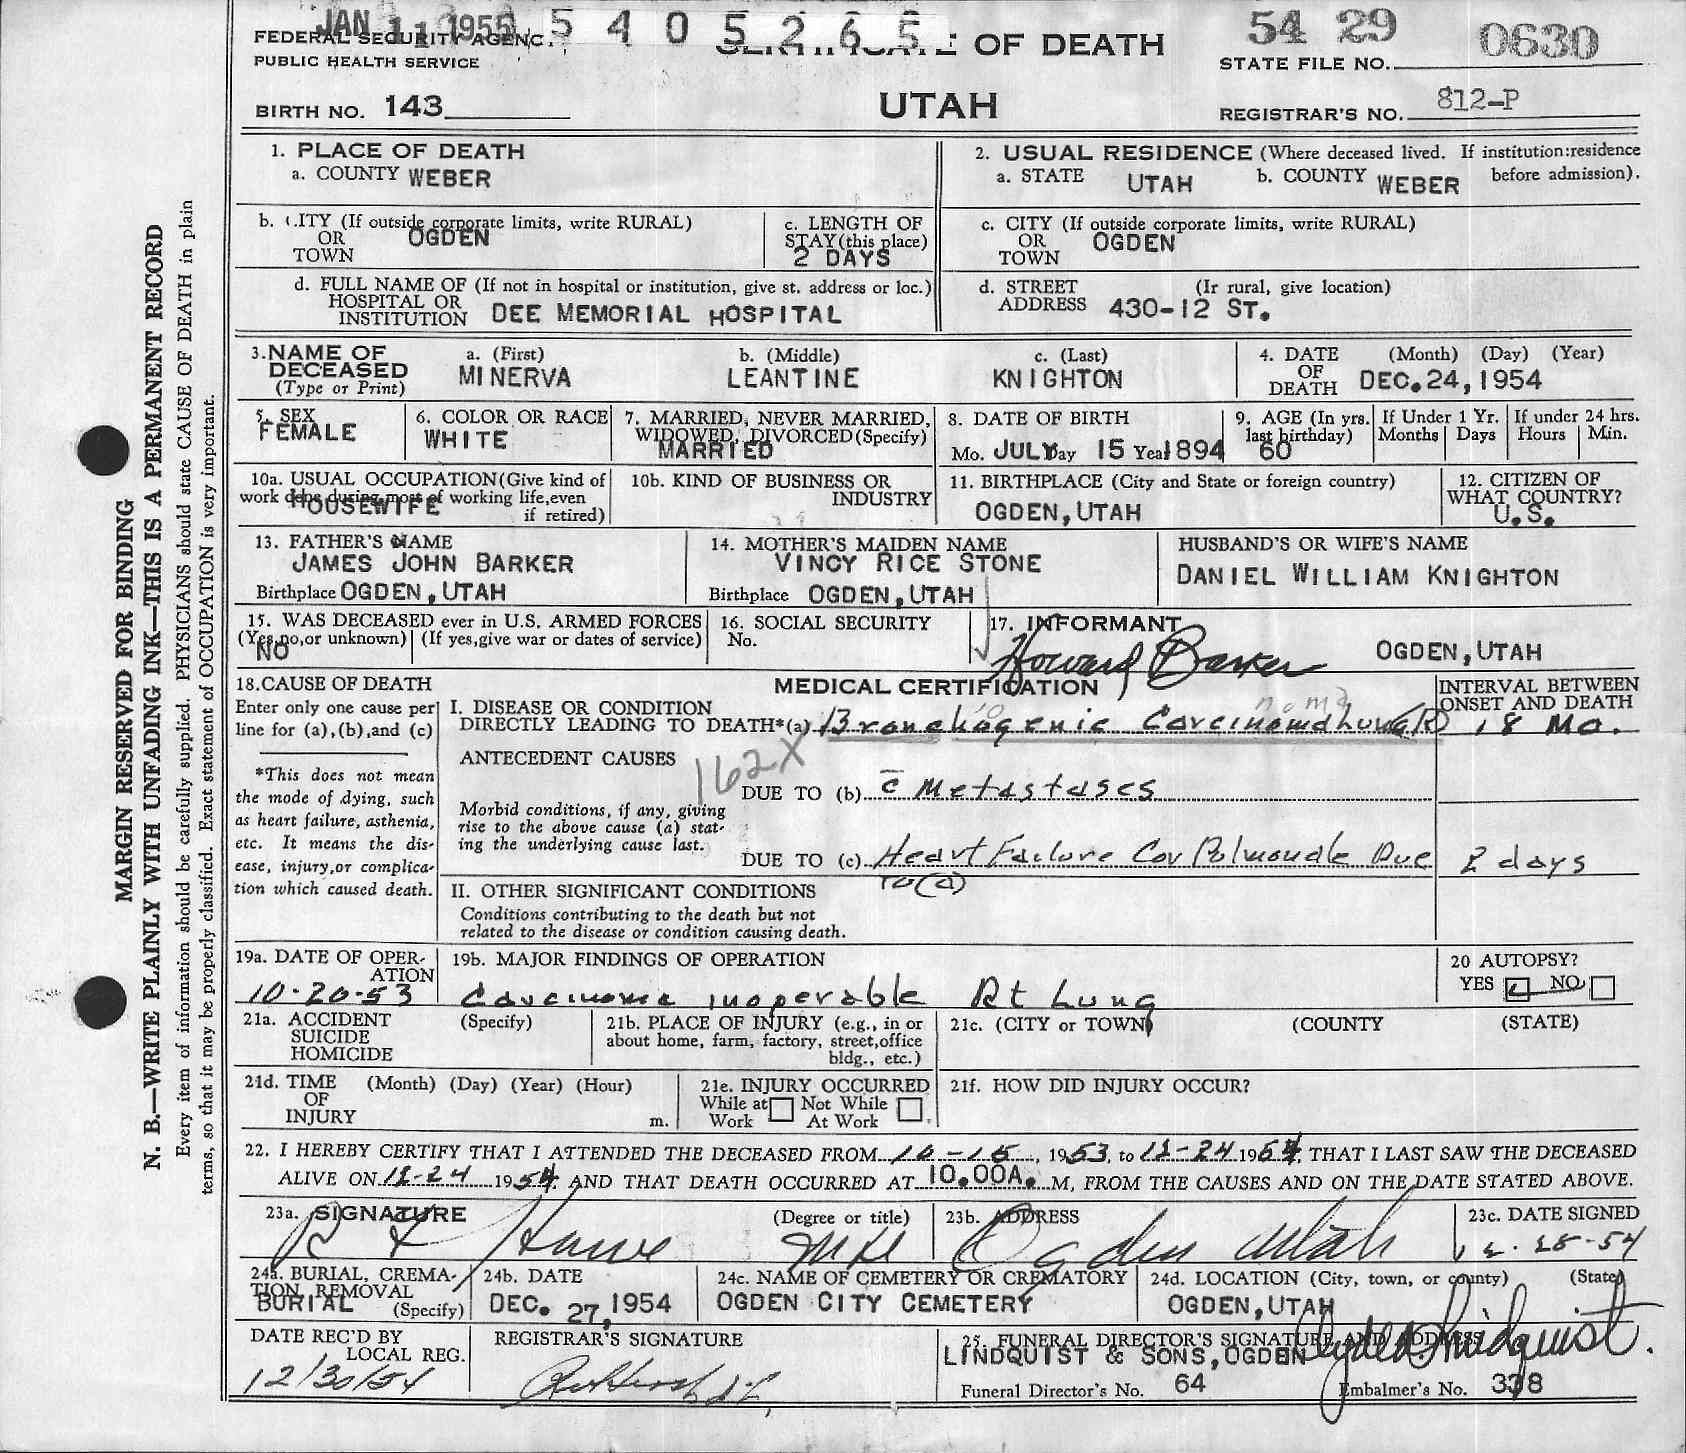 JAN 11 1955 5 4 0 5 2 6 5 54 29 0630
FEDERAL SECURITY AGENCY CERTIFICATE OF DEATH
PUBLIC HEALTH SERVICE STATE FILE NO.
BIRTH NO. 143 UTAH REGISTRAR'S NO. 812-P
MARGIN RESERVED FOR BINDING
N. B.—WRITE PLAINLY WITH UNFADING INK—THIS IS A PERMANENT RECORD
Every item of information should be carefully supplied. PHYSICIANS should state CAUSE OF DEATH in plain
terms, so that it may be properly classified. Exact statement of OCCUPATION is very important.
1. PLACE OF DEATH
a. COUNTY WEBER
2. USUAL RESIDENCE (Where deceased lived. If institution:residence
before admission).
a. STATE UTAH b. COUNTY WEBER
b. CITY (If outside corporate limits, write RURAL)
OR OGDEN
TOWN
c. LENGTH OF
STAY(this place)
2 DAYS
c. CITY (If outside corporate limits, write RURAL)
OR OGDEN
TOWN
d. FULL NAME OF (If not in hospital or institution, give st. address or loc.)
HOSPITAL OR
INSTITUTION DEE MEMORIAL HOSPITAL
d. STREET (Ir rural, give location)
ADDRESS 430-12 ST.
3. NAME OF
DECEASED
(Type or Print)
a. (First)
MINERVA
b. (Middle)
LEANTINE
c. (Last)
KNIGHTON
4. DATE (Month) (Day) (Year)
OF
DEATH DEC. 24, 1954
5. SEX
FEMALE
6. COLOR OR RACE
WHITE
7. MARRIED, NEVER MARRIED,
WIDOWED, DIVORCED(Specify)
MARRIED
8. DATE OF BIRTH
Mo. JULY Day 15 Year 1894
9. AGE (In yrs.
last birthday)
60
If Under 1 Yr.
Months Days
If under 24 hrs.
Hours Min.
10a. USUAL OCCUPATION(Give kind of
work done during most of working life,even
HOUSEWIFE if retired)
10b. KIND OF BUSINESS OR
INDUSTRY
11. BIRTHPLACE (City and State or foreign country)
OGDEN, UTAH
12. CITIZEN OF
WHAT COUNTRY?
U.S.
13. FATHER'S NAME
JAMES JOHN BARKER
Birthplace OGDEN, UTAH
14. MOTHER'S MAIDEN NAME
VINCY RICE STONE
Birthplace OGDEN, UTAH
HUSBAND'S OR WIFE'S NAME
DANIEL WILLIAM KNIGHTON
15. WAS DECEASED ever in U.S. ARMED FORCES
(Yes,no,or unknown) (If yes,give war or dates of service)
NO
16. SOCIAL SECURITY
No.
17. INFORMANT
Howard Barker OGDEN, UTAH
18. CAUSE OF DEATH
Enter only one cause per
line for (a),(b),and (c)
*This does not mean
the mode of dying, such
as heart failure, asthenia,
etc. It means the dis-
ease, injury,or complica-
tion which caused death.
MEDICAL CERTIFICATION
INTERVAL BETWEEN
ONSET AND DEATH
I. DISEASE OR CONDITION
DIRECTLY LEADING TO DEATH*(a) Bronchogenic Carcinoma Lung (R) 18 Mo.
noma
ANTECEDENT CAUSES
162X
DUE TO (b) c̄ Metastases
Morbid conditions, if any, giving
rise to the above cause (a) stat-
ing the underlying cause last.
DUE TO (c) Heart Failure Cor Pulmonale Due 2 days
To (a)
II. OTHER SIGNIFICANT CONDITIONS
Conditions contributing to the death but not
related to the disease or condition causing death.
19a. DATE OF OPER-
ATION
10-20-53
19b. MAJOR FINDINGS OF OPERATION
Carcinoma inoperable Rt Lung
20 AUTOPSY?
YES NO
21a. ACCIDENT (Specify)
SUICIDE
HOMICIDE
21b. PLACE OF INJURY (e.g., in or
about home, farm, factory, street,office
bldg., etc.)
21c. (CITY or TOWN) (COUNTY (STATE)
21d. TIME (Month) (Day) (Year) (Hour)
OF
INJURY m.
21e. INJURY OCCURRED
While at Not While
Work At Work
21f. HOW DID INJURY OCCUR?
22. I HEREBY CERTIFY THAT I ATTENDED THE DECEASED FROM 10-15, 1953, to 12-24 1954, THAT I LAST SAW THE DECEASED
ALIVE ON 12-24 1954, AND THAT DEATH OCCURRED AT 10.00A. M, FROM THE CAUSES AND ON THE DATE STATED ABOVE.
23a. SIGNATURE (Degree or title)
MD
23b. ADDRESS
Ogden Utah
23c. DATE SIGNED
12-28-54
24a. BURIAL, CREMA-
TION, REMOVAL
BURIAL (Specify)
24b. DATE
DEC. 27, 1954
24c. NAME OF CEMETERY OR CREMATORY
OGDEN CITY CEMETERY
24d. LOCATION (City, town, or county) (State)
OGDEN, UTAH
DATE REC'D BY
LOCAL REG.
12/30/54
REGISTRAR'S SIGNATURE
25. FUNERAL DIRECTOR'S SIGNATURE AND ADDRESS
LINDQUIST & SONS, OGDEN Clyde Lindquist.
Funeral Director's No. 64 Embalmer's No. 338